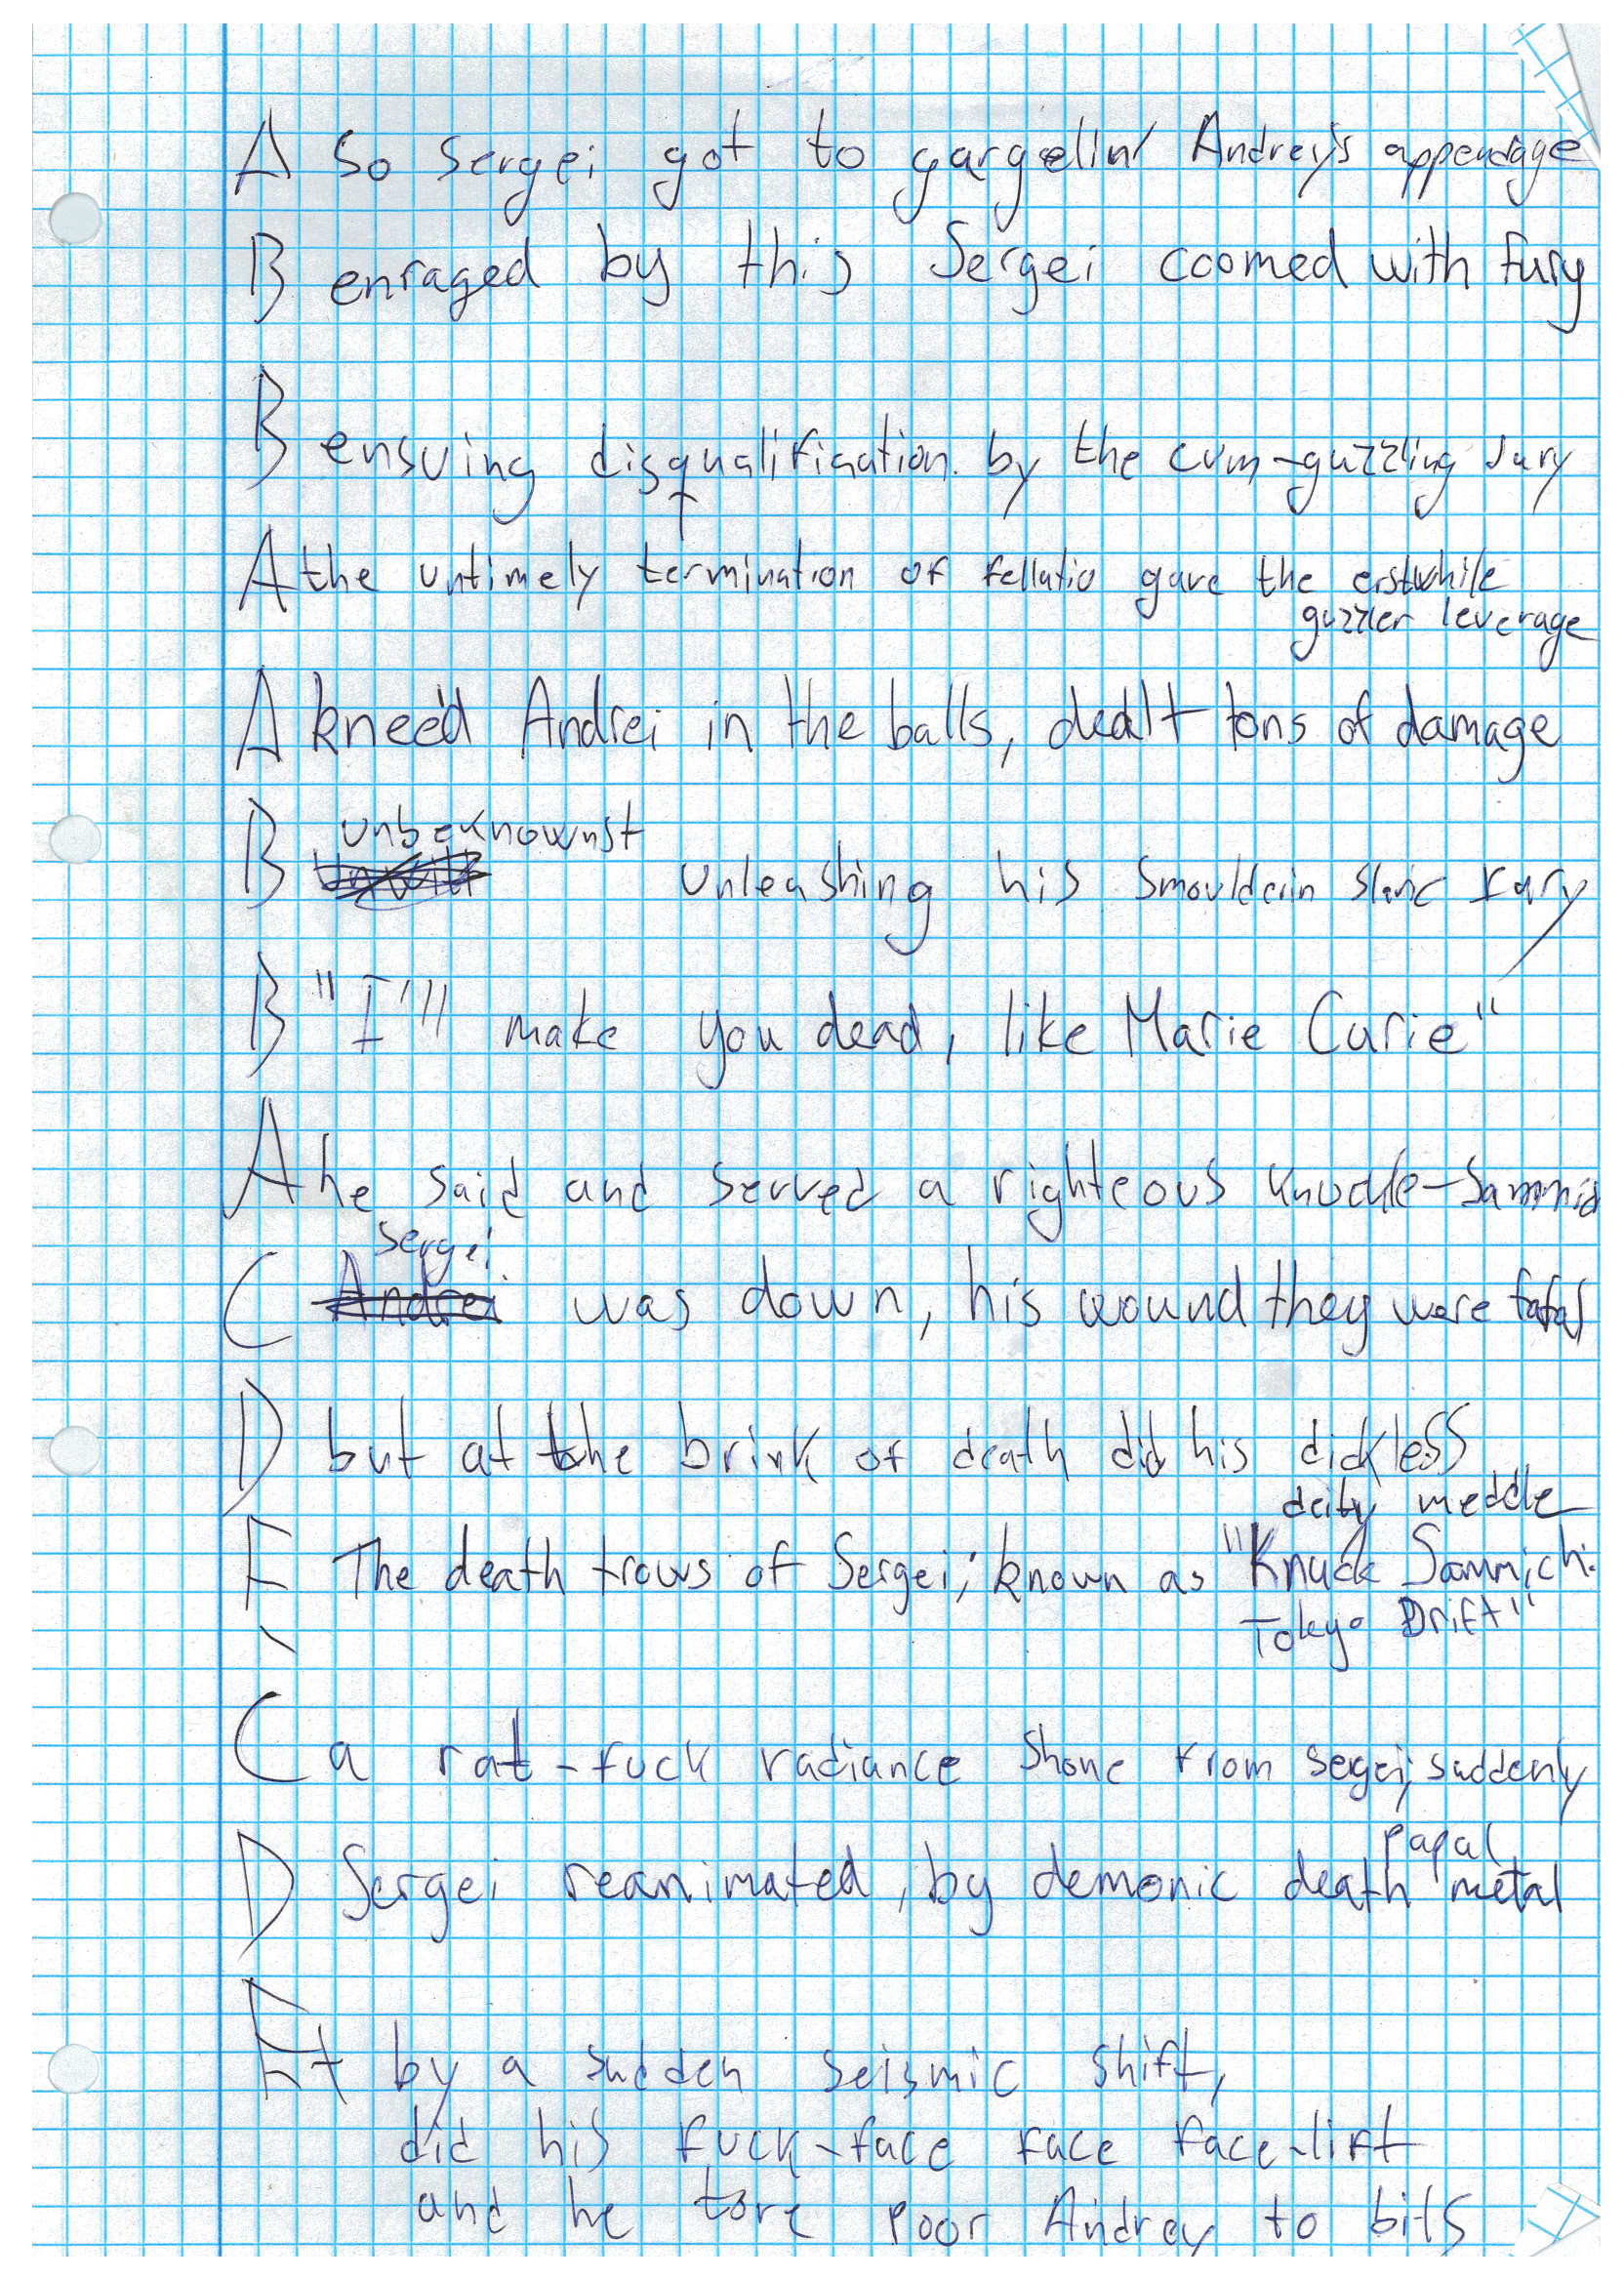 A So Sergei got to gargelin' Andrey's appendage
B enraged by this Sergei coomed with fury
B ensuing disqualifiaation. by the cum-guzzling Jury
A the untimely termination of fellatio gave the erstwhile
guzzler leverage
A knee'd Andrei in the balls, dealt tons of damage
unbeknownst
B unleashing his smoulderin slavic
B "I'll make you dead, like Marie Curie"
A he said and served a righteous knuckle-Sammich
Sergei
C Andrei was down, his wound they were fatal
D but at the brink of death did his dickless
deity meddle
E The death trows of Sergei; known as "Knuck Sammich:
Tokyo Drift"
C a rat-fuck radiance shone from Sergei, suddenly
papal
D Sergei reanimated, by demonic death metal
E t by a sudden seismic shift,
did his fuck-face face face-lift
and he tore poor Andrey to bits